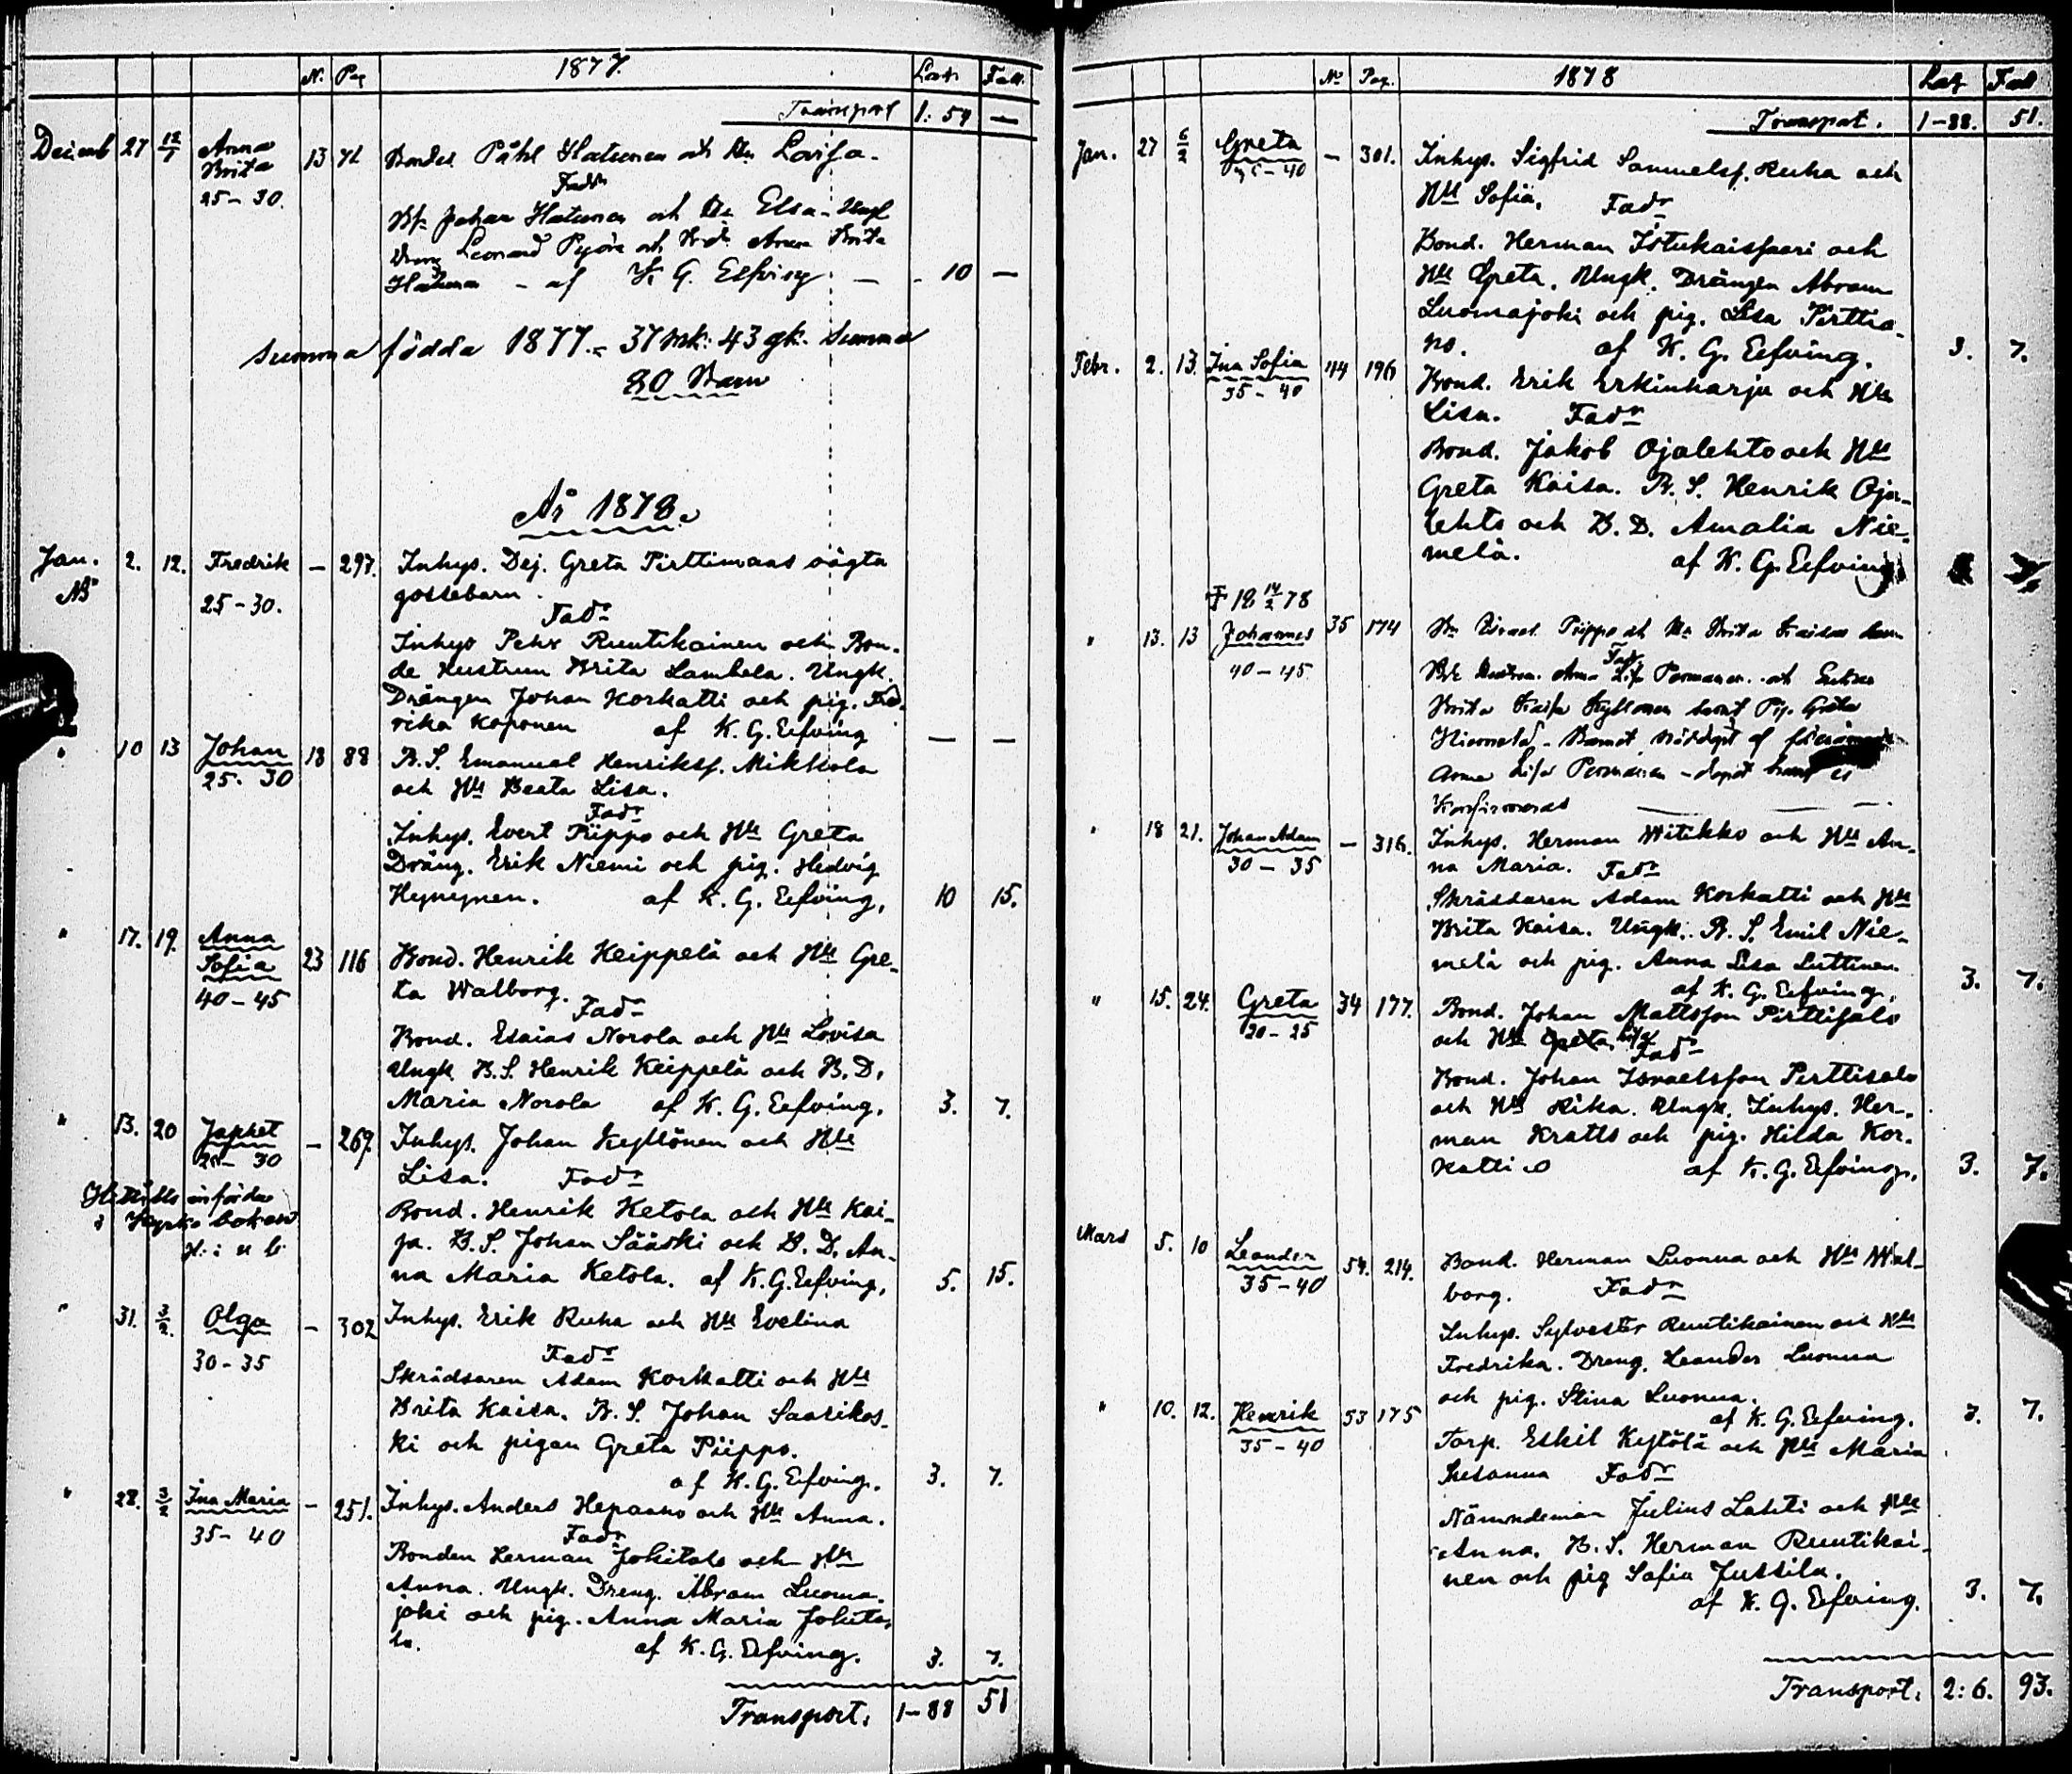 N. Pag 1877. Fatt.
Transport 1: 54 —
Decemb 27 12/1 Anna Brita 25-30. 13 Bonden Påhl Hatunen och Lovisa.
Fadr
Johan Hatunen och Elsa. Ungk
Dreng Leonard Pyörä och Anna Brita
af K. G. Elfving — 10 —
Summa födda 1877. = 37 mk: 43 qk. Summa
80 Barn
År 1878.
Jan. 2. 12. Fredrik — 297. Inhys. Dej. Greta Pirttimaas oägta
25-30. gossebarn.
Fadr
Inhys Petter Ruutikainen och Bon-
de Hustrun Brita Lambela. Ungk.
Drängen Johan Korkatti och pig. Fred-
rika Koponen af K. G. Eefving — —
" 10 13 Johan 18 88 B. S. Emanuel Henrikss. Mikkola
25- 30 och Hu Beata Lisa.
Fadr
Inhys. Evert Piippo och Hu Greta
Dräng. Erik Niemi och pig. Hedvig
Hynynen. af K. G. Eefving, 10 15.
" 17. 19. Anna Sofia 23 116 Bond. Henrik Keippelä och Hu Gre-
40-45 ta Walborg.
Fadr
Bond. Esaias Norola och Hu Lovisa
Ungk B.S. Henrik Keippelä och B.D.
Maria Norola af K. G. Eefving, 3. 7.
" 13. 20 Japhet — 267. Inhys. Johan Kyllönen och Hu
30 Lisa. Fadr
Bond. Henrik Ketola och Hu Kai-
sa. B.S. Johan Sääski och B. D. An-
na Maria Ketola. af K.G. Eefving, 5. 15.
" 31. 3/2. Olga — 302 Inhys. Erik Ruha och Hu Evelina
30-35 Fadr
Skrädsaren Adam Korkatti och Hu
Brita Kaisa. B. S. Johan Saarikos-
ki och pigan Greta Piippo.
af K. G. Eefving. 3. 7.
" 28. 3/2 Ina Maria — 251. Inhys. Anders Hepaaho och Hu Anna.
35- 40 Fadr
Bonden Herman Jokitalo och Hu
Anna. Ungk. Dreng. Abram Luoma-
joki och pig. Anna Maria Jokita-
lo. af K. G. Eefving. 3. 7.
Transport. 1-88 51
No Pag. 1878
Transport. 1-88. 51.
Jan. 27 6/2 Greta — 301. Inhys. Sigfrid Samuelss. Ruha och
Hu Sofia, Fadr
Bond. Herman Istukaissaari och
Hu Greta. Ungk. Drängen Abram
Luomajoki och pig. Lisa Pirttia-
ho. af K. G. Eefving. 3. 7.
Febr. 2. 13. Ina Sofia 44 196 Bond. Erik Erkinharju och Hu
35-40 Lisa. Fadr
Bond. Jakob Ojalehto och Hu
Greta Kaisa. B. S. Henrik Oja-
lehto och B. D. Amalia Nie-
melä. af K. G. Eefving
F 18 14/2 78
" 13. 13 Johannes 35 174 Piippo och Brita
40-45 Fadr
Anna Lisa
Brita Kaisa Kyllönen samt Pig. Greta
Barnet nöddöpt af
Anna Lisa
Konfirmeras —
" 18 21. Johan Adam — 316. Inhys. Herman Witikko och Hu An-
30-35 na Maria. Fadr
Skräddaren Adam Korkatti och Hu
Brita Kaisa. Ungk. B. S. Emil Nie-
melä och pig. Anna Lisa Luttinen
af K. G. Eefving. 3. 7.
" 15. 24. Greta 34 177. Bond. Johan Mattsson Pirttisalo
20-25 och Hu Greta Lisa
Fadr
Bond. Johan Israelsson Perttisalo
och Hu Rika. Ungk. Inhys. Her-
man Kratts och pig. Hilda Kor-
katti af K. G. Eefving. 3. 7.
Mars 5. 10 Leander 54. 214. Bond. Herman Luonua och Hu Wal-
35-40 borg. Fadr
Inhys. Sylvester Ruutikainen och Hu
Fredrika. Dreng. Leander Luonua
och pig. Stina Luonua.
af K. G. Eefving. 3. 7.
" 10. 12. Henrik 53 175 Torp. Eskil Kytölä och Hu Maria
35-40 Susanna Fadr
Nämndeman Julius Lahti och Hu
Anna. B. S. Herman Ruutikai-
nen och pig Sofia Jussila.
af K. G. Eefving. 3. 7.
Transport. 2:6. 93.